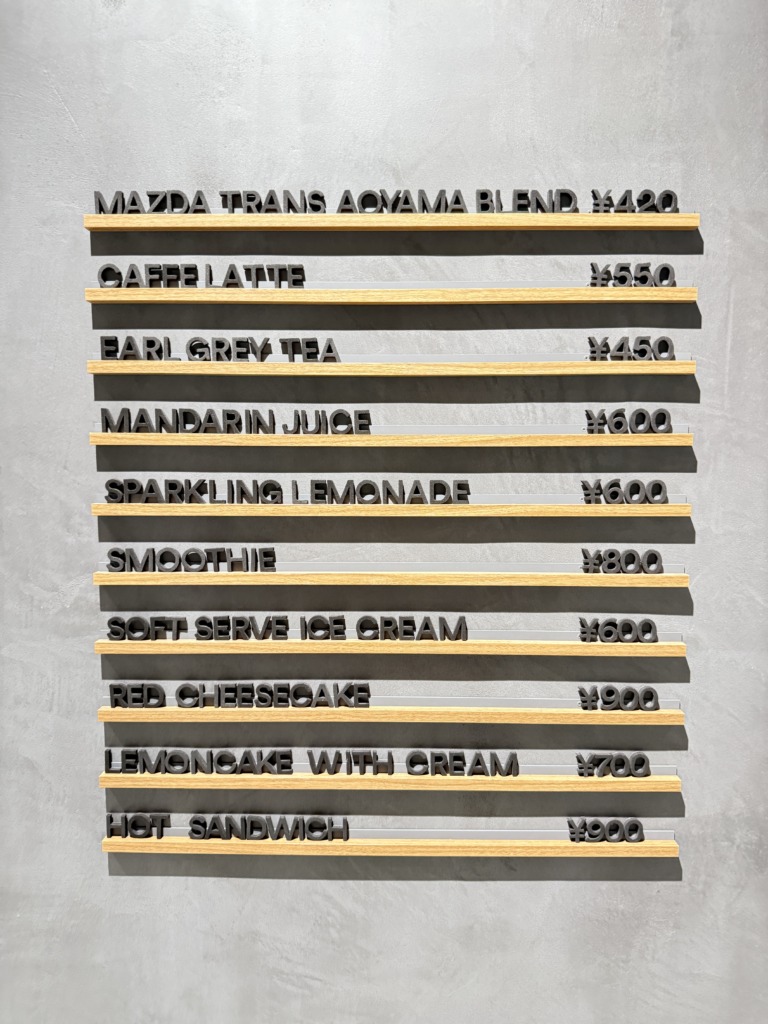 MAZDA TRANS AOYAMA BLEND ¥420
CAFFE LATTE ¥550
EARL GREY TEA ¥450
MANDARIN JUICE ¥600
SPARKLING LEMONADE ¥600
SMOOTHIE ¥800
SOFT SERVE ICE CREAM ¥600
RED CHEESECAKE ¥900
LEMONCAKE WITH CREAM ¥700
HOT SANDWICH ¥900